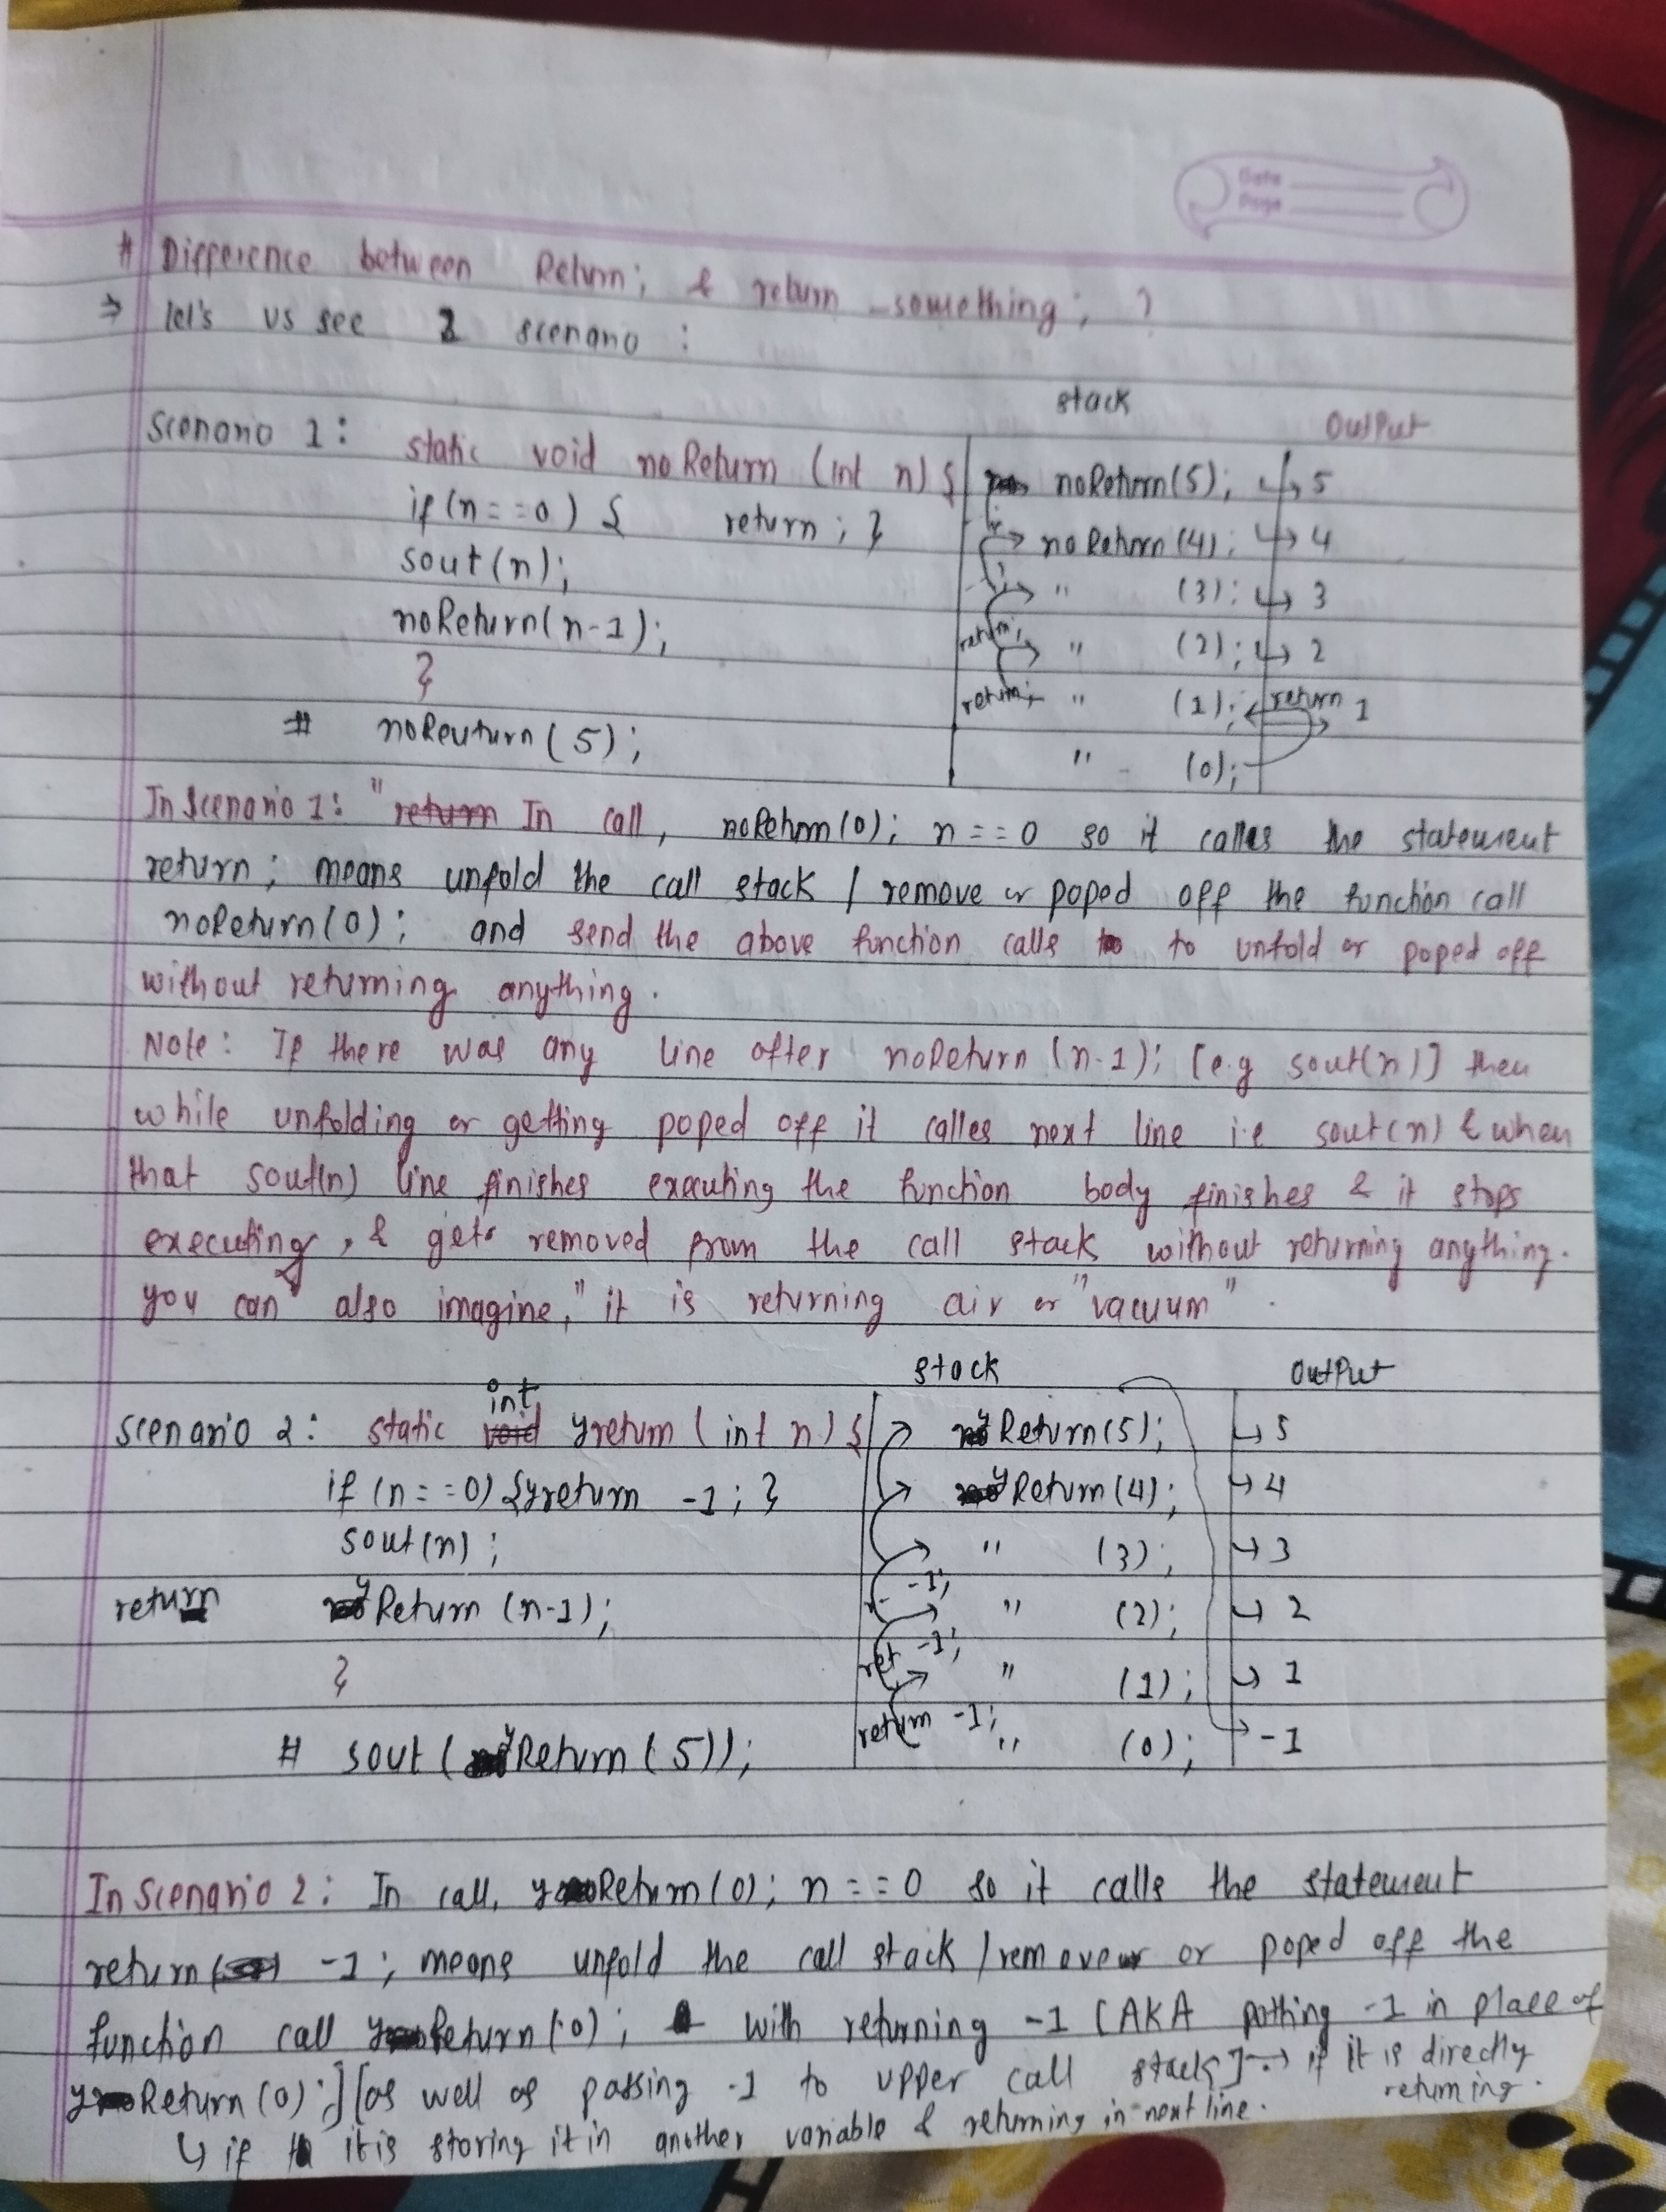 Date
Page
# Difference between Return; & return something; ?
⇒ let's us see 2 scenario :
stack
Output
Scenario 1: static void noReturn (int n) { noReturn(5); ↳ 5
if (n==0) { return; } noReturn (4); ↳ 4
sout(n); " (3); ↳ 3
noReturn(n-1); return; " (2); ↳ 2
} return; " (1); ← return 1
# noReuturn (5); " (0);
In Scenario 1: " return In call, noReturn(0); n==0 so it calles the statement
return; means unfold the call stack / remove or poped off the function call
noReturn(0); and send the above function calls to to unfold or poped off
without returning anything.
Note: If there was any line after noReturn (n-1); [e.g sout(n)] then
while unfolding or getting poped off it calles next line i.e sout(n) & when
that sout(n) line finishes executing the function body finishes & it stops
executing, & gets removed from the call stack without returning anything.
you can also imagine," it is returning air or "vacuum".
stack Output
int
Scenario 2: static void yreturn (int n) { yReturn(5); ↳ 5
if (n==0) {yreturn -1; } yReturn(4); ↳ 4
sout(n); " (3); ↳ 3
-1;
return yReturn (n-1); " (2); ↳ 2
ret -1;
} " (1); ↳ 1
return -1;
# sout (yReturn (5)); " (0); -1
In Scenario 2: In call, yReturn(0); n==0 so it calls the statement
return -1; means unfold the call stack / remove or poped off the
function call yReturn(0); with returning -1 [AKA putting -1 in place of
yReturn (0);] [as well as passing -1 to upper call stack] → if it is directly
returning.
↳ if it is storing it in another variable & returning in next line.